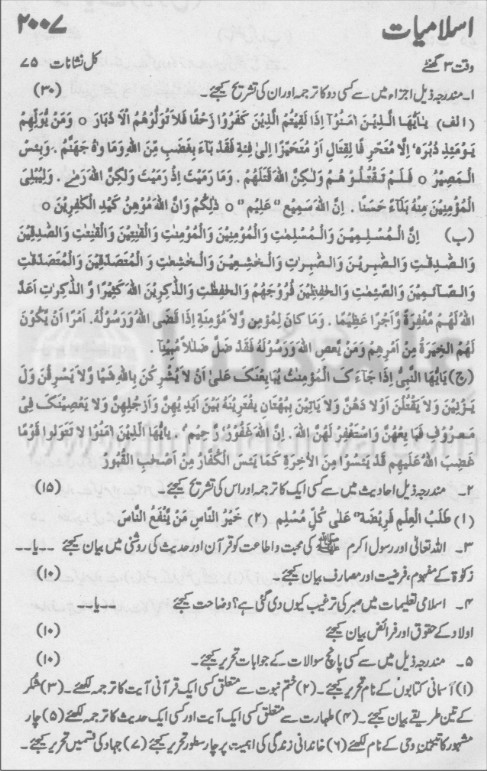 اسلامیات ۲۰۰۷
وقت ۳ گھنٹے کل نشانات ۷۵
۱۔ مندرجہ ذیل اجزاء میں سے کسی دو کا ترجمہ اور ان کی تشریح کیجئے۔ (۳۰)
(الف) یٰاَیُّھَا الَّذِیْنَ اٰمَنُوْا اِذَا لَقِیْتُمُ الَّذِیْنَ کَفَرُوْا زَحْفًا فَلَا تُوَلُّوْھُمُ الْاَدْبَارَ ○ وَمَنْ یُّوَلِّھِمْ
یَوْمَئِذٍ دُبُرَہٗ اِلَّا مُتَحَرِّفًا لِّقِتَالٍ اَوْ مُتَحَیِّزًا اِلٰی فِئَۃٍ فَقَدْ بَآءَ بِغَضَبٍ مِّنَ اللّٰہِ وَمَاْوٰہُ جَھَنَّمُ۔ وَبِئْسَ
الْمَصِیْرُ ○ فَلَمْ تَقْتُلُوْھُمْ وَلٰکِنَّ اللّٰہَ قَتَلَھُمْ۔ وَمَا رَمَیْتَ اِذْ رَمَیْتَ وَلٰکِنَّ اللّٰہَ رَمٰی۔ وَلِیُبْلِیَ
الْمُؤْمِنِیْنَ مِنْہُ بَلَآءً حَسَنًا۔ اِنَّ اللّٰہَ سَمِیْعٌ عَلِیْمٌ ○ ذٰلِکُمْ وَاَنَّ اللّٰہَ مُوْھِنُ کَیْدِ الْکٰفِرِیْنَ ○
(ب) اِنَّ الْمُسْلِمِیْنَ وَالْمُسْلِمٰتِ وَالْمُؤْمِنِیْنَ وَالْمُؤْمِنٰتِ وَالْقٰنِتِیْنَ وَالْقٰنِتٰتِ وَالصّٰدِقِیْنَ
وَالصّٰدِقٰتِ وَالصّٰبِرِیْنَ وَالصّٰبِرٰتِ وَالْخٰشِعِیْنَ وَالْخٰشِعٰتِ وَالْمُتَصَدِّقِیْنَ وَالْمُتَصَدِّقٰتِ
وَالصَّآئِمِیْنَ وَالصّٰٓئِمٰتِ وَالْحٰفِظِیْنَ فُرُوْجَھُمْ وَالْحٰفِظٰتِ وَالذّٰکِرِیْنَ اللّٰہَ کَثِیْرًا وَّالذّٰکِرٰتِ اَعَدَّ
اللّٰہُ لَھُمْ مَّغْفِرَۃً وَّاَجْرًا عَظِیْمًا۔ وَمَا کَانَ لِمُؤْمِنٍ وَّلَا مُؤْمِنَۃٍ اِذَا قَضَی اللّٰہُ وَرَسُوْلُہٗٓ اَمْرًا اَنْ یَّکُوْنَ
لَھُمُ الْخِیَرَۃُ مِنْ اَمْرِھِمْ وَمَنْ یَّعْصِ اللّٰہَ وَرَسُوْلَہٗ فَقَدْ ضَلَّ ضَلٰلًا مُّبِیْنًا۔
(ج) یٰاَیُّھَا النَّبِیُّ اِذَا جَآءَکَ الْمُؤْمِنٰتُ یُبَایِعْنَکَ عَلٰٓی اَنْ لَّا یُشْرِکْنَ بِاللّٰہِ شَیْئًا وَّلَا یَسْرِقْنَ وَلَا
یَزْنِیْنَ وَلَا یَقْتُلْنَ اَوْلَادَھُنَّ وَلَا یَاْتِیْنَ بِبُھْتَانٍ یَّفْتَرِیْنَہٗ بَیْنَ اَیْدِیْھِنَّ وَاَرْجُلِھِنَّ وَلَا یَعْصِیْنَکَ فِیْ
مَعْرُوْفٍ فَبَایِعْھُنَّ وَاسْتَغْفِرْ لَھُنَّ اللّٰہَ۔ اِنَّ اللّٰہَ غَفُوْرٌ رَّحِیْمٌ۔ یٰاَیُّھَا الَّذِیْنَ اٰمَنُوْا لَا تَتَوَلَّوْا قَوْمًا
غَضِبَ اللّٰہُ عَلَیْھِمْ قَدْ یَئِسُوْا مِنَ الْاٰخِرَۃِ کَمَا یَئِسَ الْکُفَّارُ مِنْ اَصْحٰبِ الْقُبُوْرِ
۲۔ مندرجہ ذیل احادیث میں سے کسی ایک کا ترجمہ اور اس کی تشریح کیجئے۔ (۱۵)
(۱) طَلَبُ الْعِلْمِ فَرِیْضَۃٌ عَلٰی کُلِّ مُسْلِمٍ (۲) خَیْرُ النَّاسِ مَنْ یَّنْفَعُ النَّاسَ
۳۔ اللہ تعالیٰ اور رسول اکرم ﷺ کی محبت و اطاعت کو قرآن اور حدیث کی روشنی میں بیان کیجئے۔ --یا--
زکوٰۃ کے مفہوم، فرضیت اور مصارف بیان کیجئے۔ (۱۰)
۴۔ اسلامی تعلیمات میں صبر کی ترغیب کیوں دی گئی ہے؟ وضاحت کیجئے --یا--
اولاد کے حقوق اور فرائض بیان کیجئے (۱۰)
۵۔ مندرجہ ذیل میں سے کسی پانچ سوالات کے جوابات تحریر کیجئے۔ (۱۰)
(۱) آسمانی کتابوں کے نام تحریر کیجئے۔ (۲) ختم نبوت سے متعلق کسی ایک قرآنی آیت کا ترجمہ لکھئے۔ (۳) شکر
کے تین طریقے بیان کیجئے۔ (۴) طہارت سے متعلق کسی ایک آیت اور کسی ایک حدیث کا ترجمہ لکھئے (۵) چار
مشہور کاتبین وحی کے نام لکھئے (۶) خاندانی زندگی کی اہمیت پر چار سطور تحریر کیجئے (۷) جہاد کی قسمیں تحریر کیجئے۔